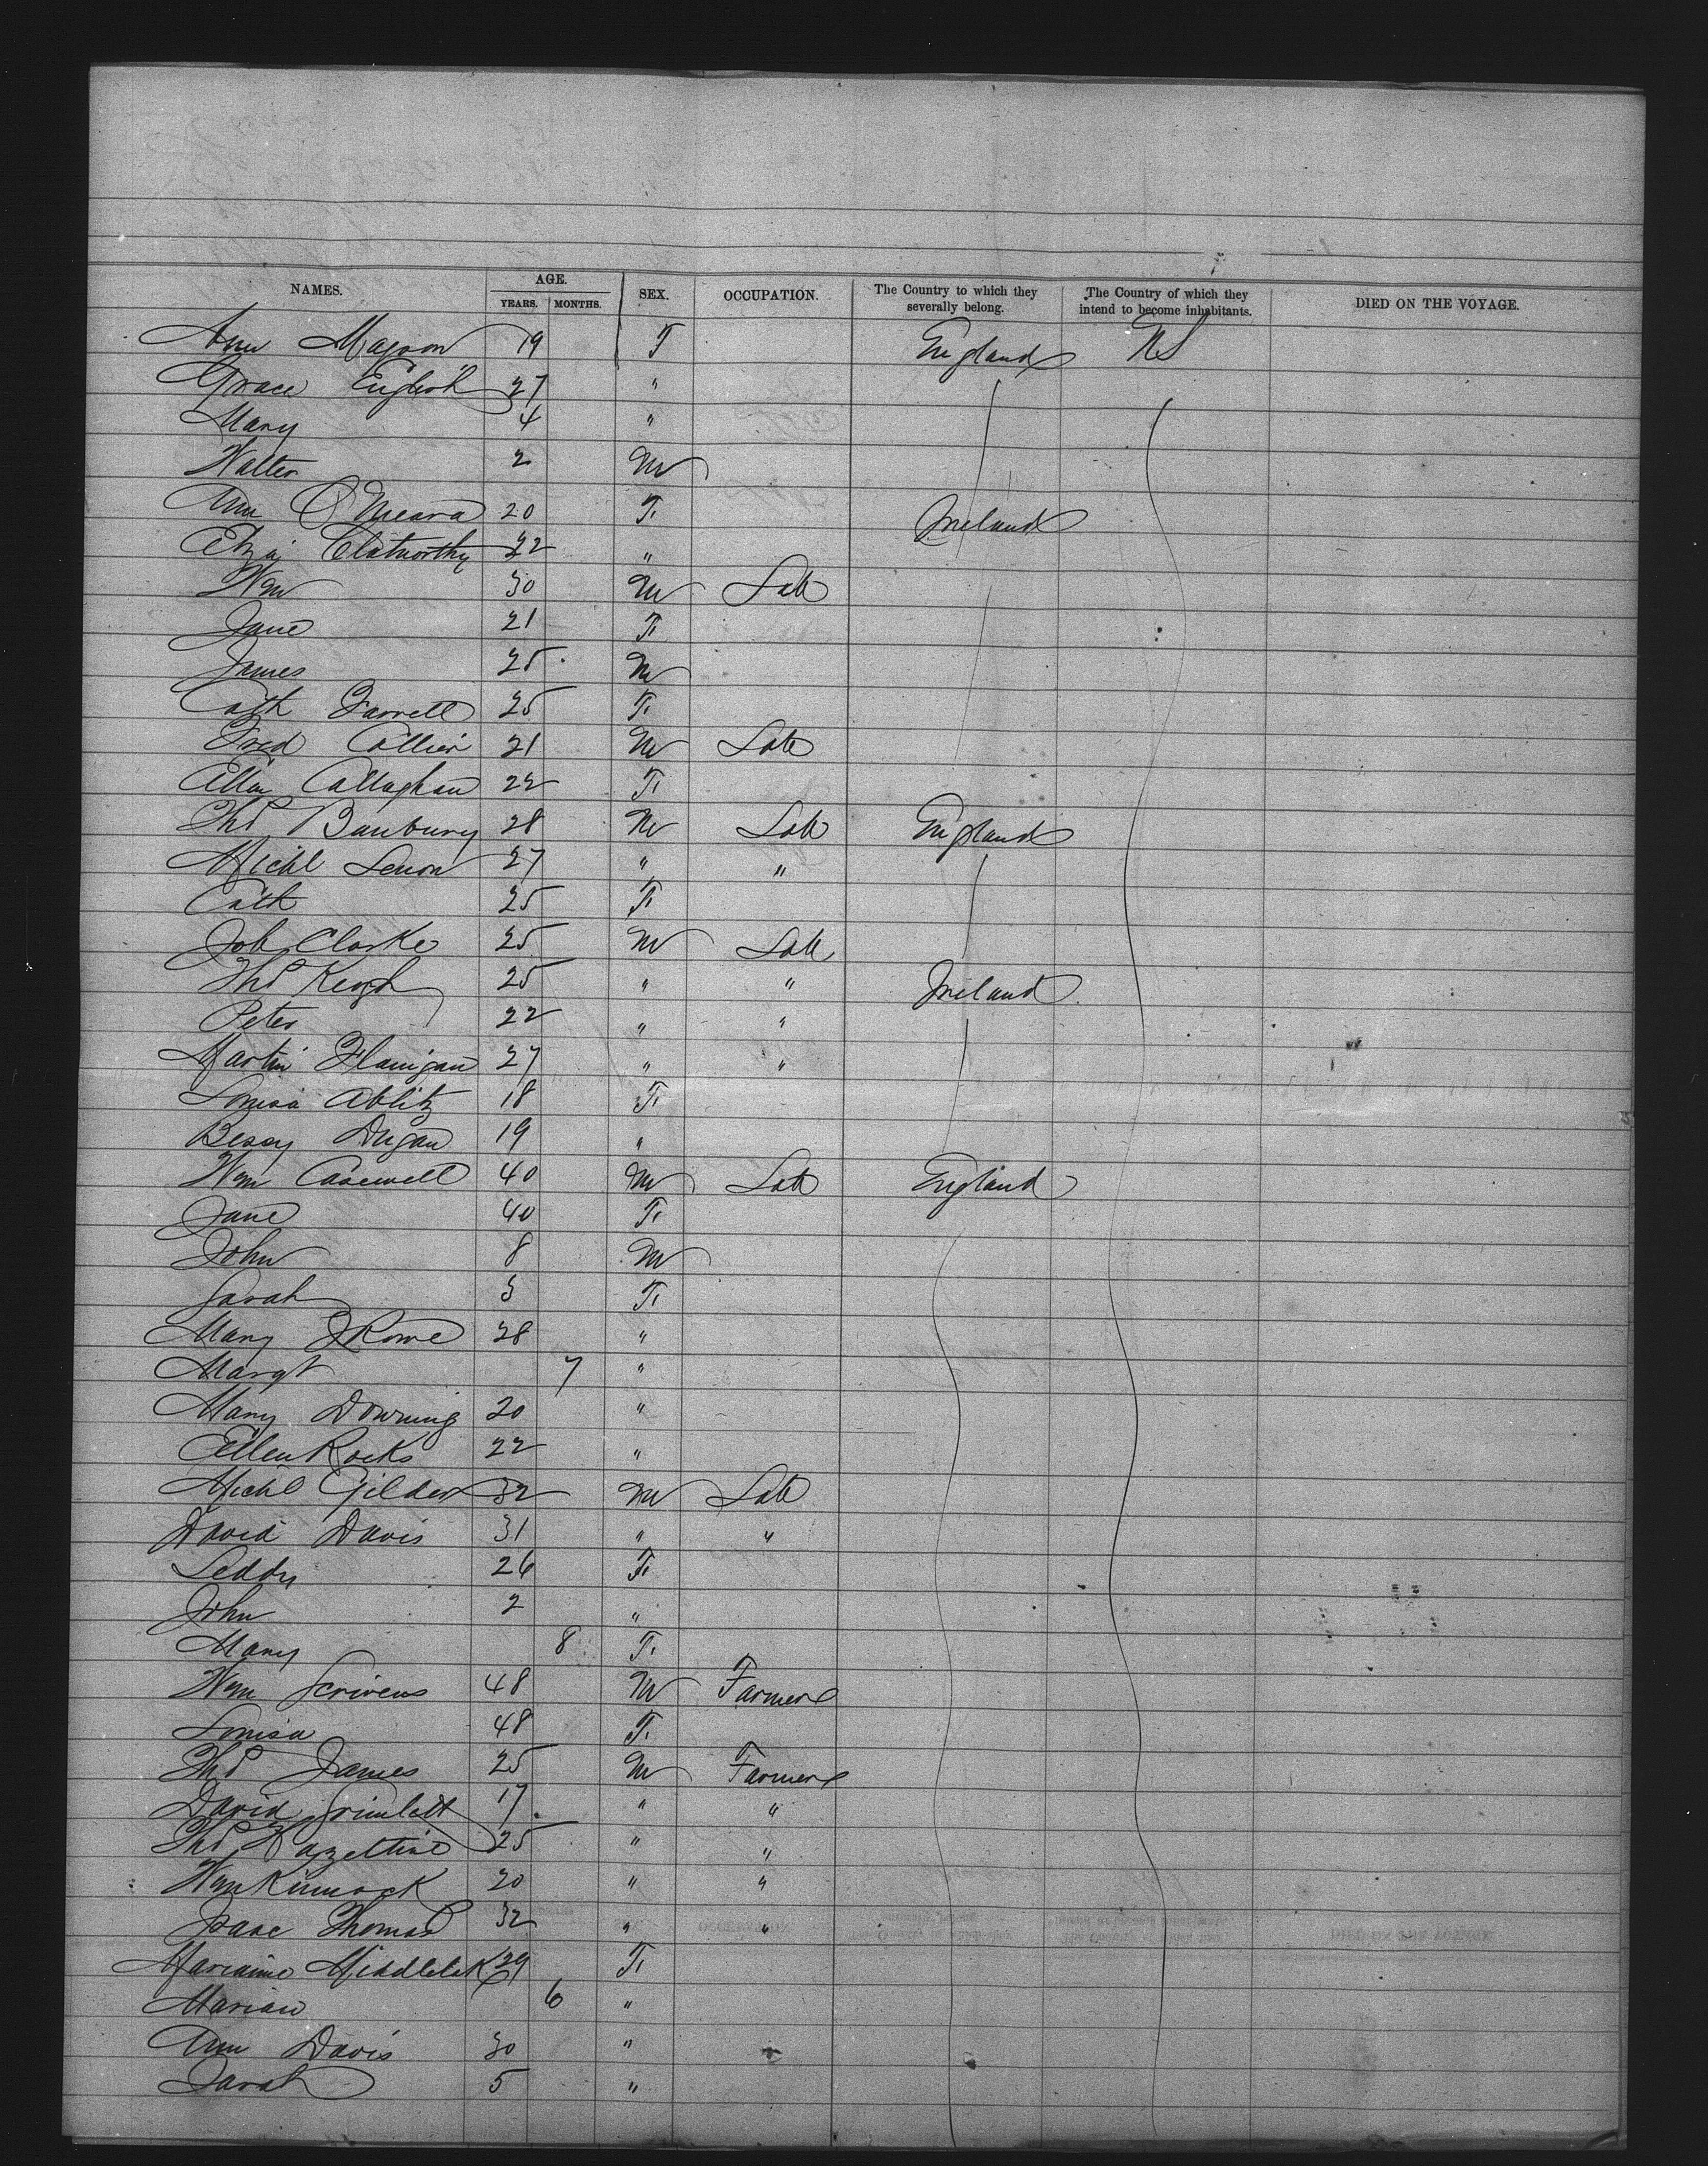 NAMES. AGE. YEARS. MONTHS. SEX. OCCUPATION. The Country to which they severally belong. The Country of which they intend to become inhabitants. DIED ON THE VOYAGE.
Ann Magson 19 F England US
Grace English 27 "
Mary 4 "
Walter 2 M
Ann O'Meara 20 F Ireland
Eliza Clatworthy 22 "
Wm 30 M Lab
Jane 21 F
James 25 M
Cath Farrell 25 F
Fred Collier 21 M Lab
Ellen Callaghan 22 F
Thos Banbury 28 M Lab England
Michl Lenon 27 " "
Cath 25 F
Job Clarke 25 M Lab
Thos Keogh 25 " " Ireland
Peter 22 " "
Martin Flanigan 27 " "
Louisa Ablitz 18 F
Bessy Dugan 19 "
Wm Casewell 40 M Lab England
Jane 40 F
John 8 M
Sarah 3 F
Mary J Rowe 28 "
Margt 7 "
Mary Downing 20 "
Ellen Rocks 22 "
Michl Gilder 32 M Lab
David Davis 31 " "
Leddy 26 F
John 2 "
Mary 8 F
Wm Scrivens 48 M Farmer
Louisa 48 F
Thos James 25 M Farmer
David Grimlett 17 " "
Thos Hazeltine 25 " "
Wm Kinnock 20 " "
Isaac Thomas 32 " "
29 F
Marian 6 "
Ann Davis 30 "
Sarah 5 "